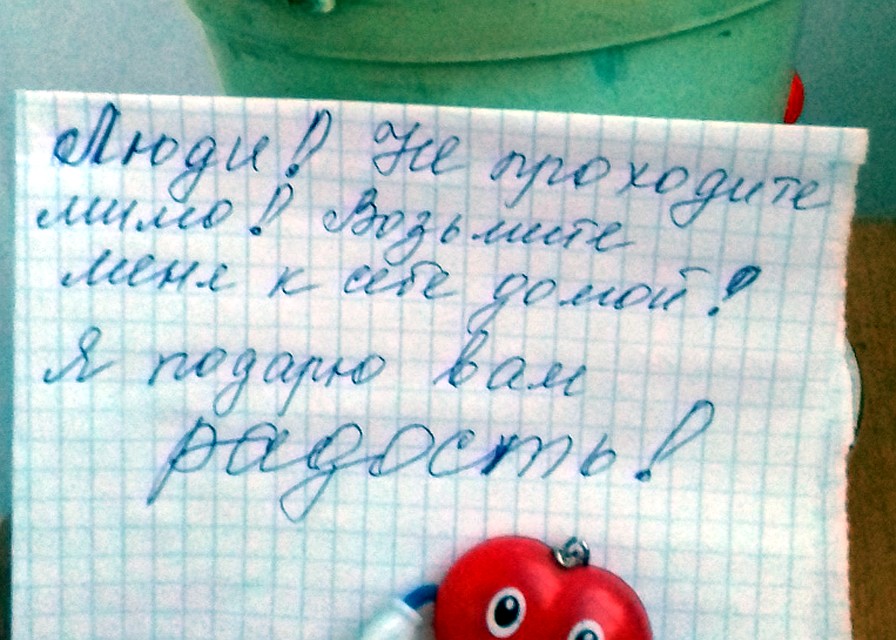 Люди! Не проходите
мимо! Возьмите
меня к себе домой!
Я подарю вам
радость!